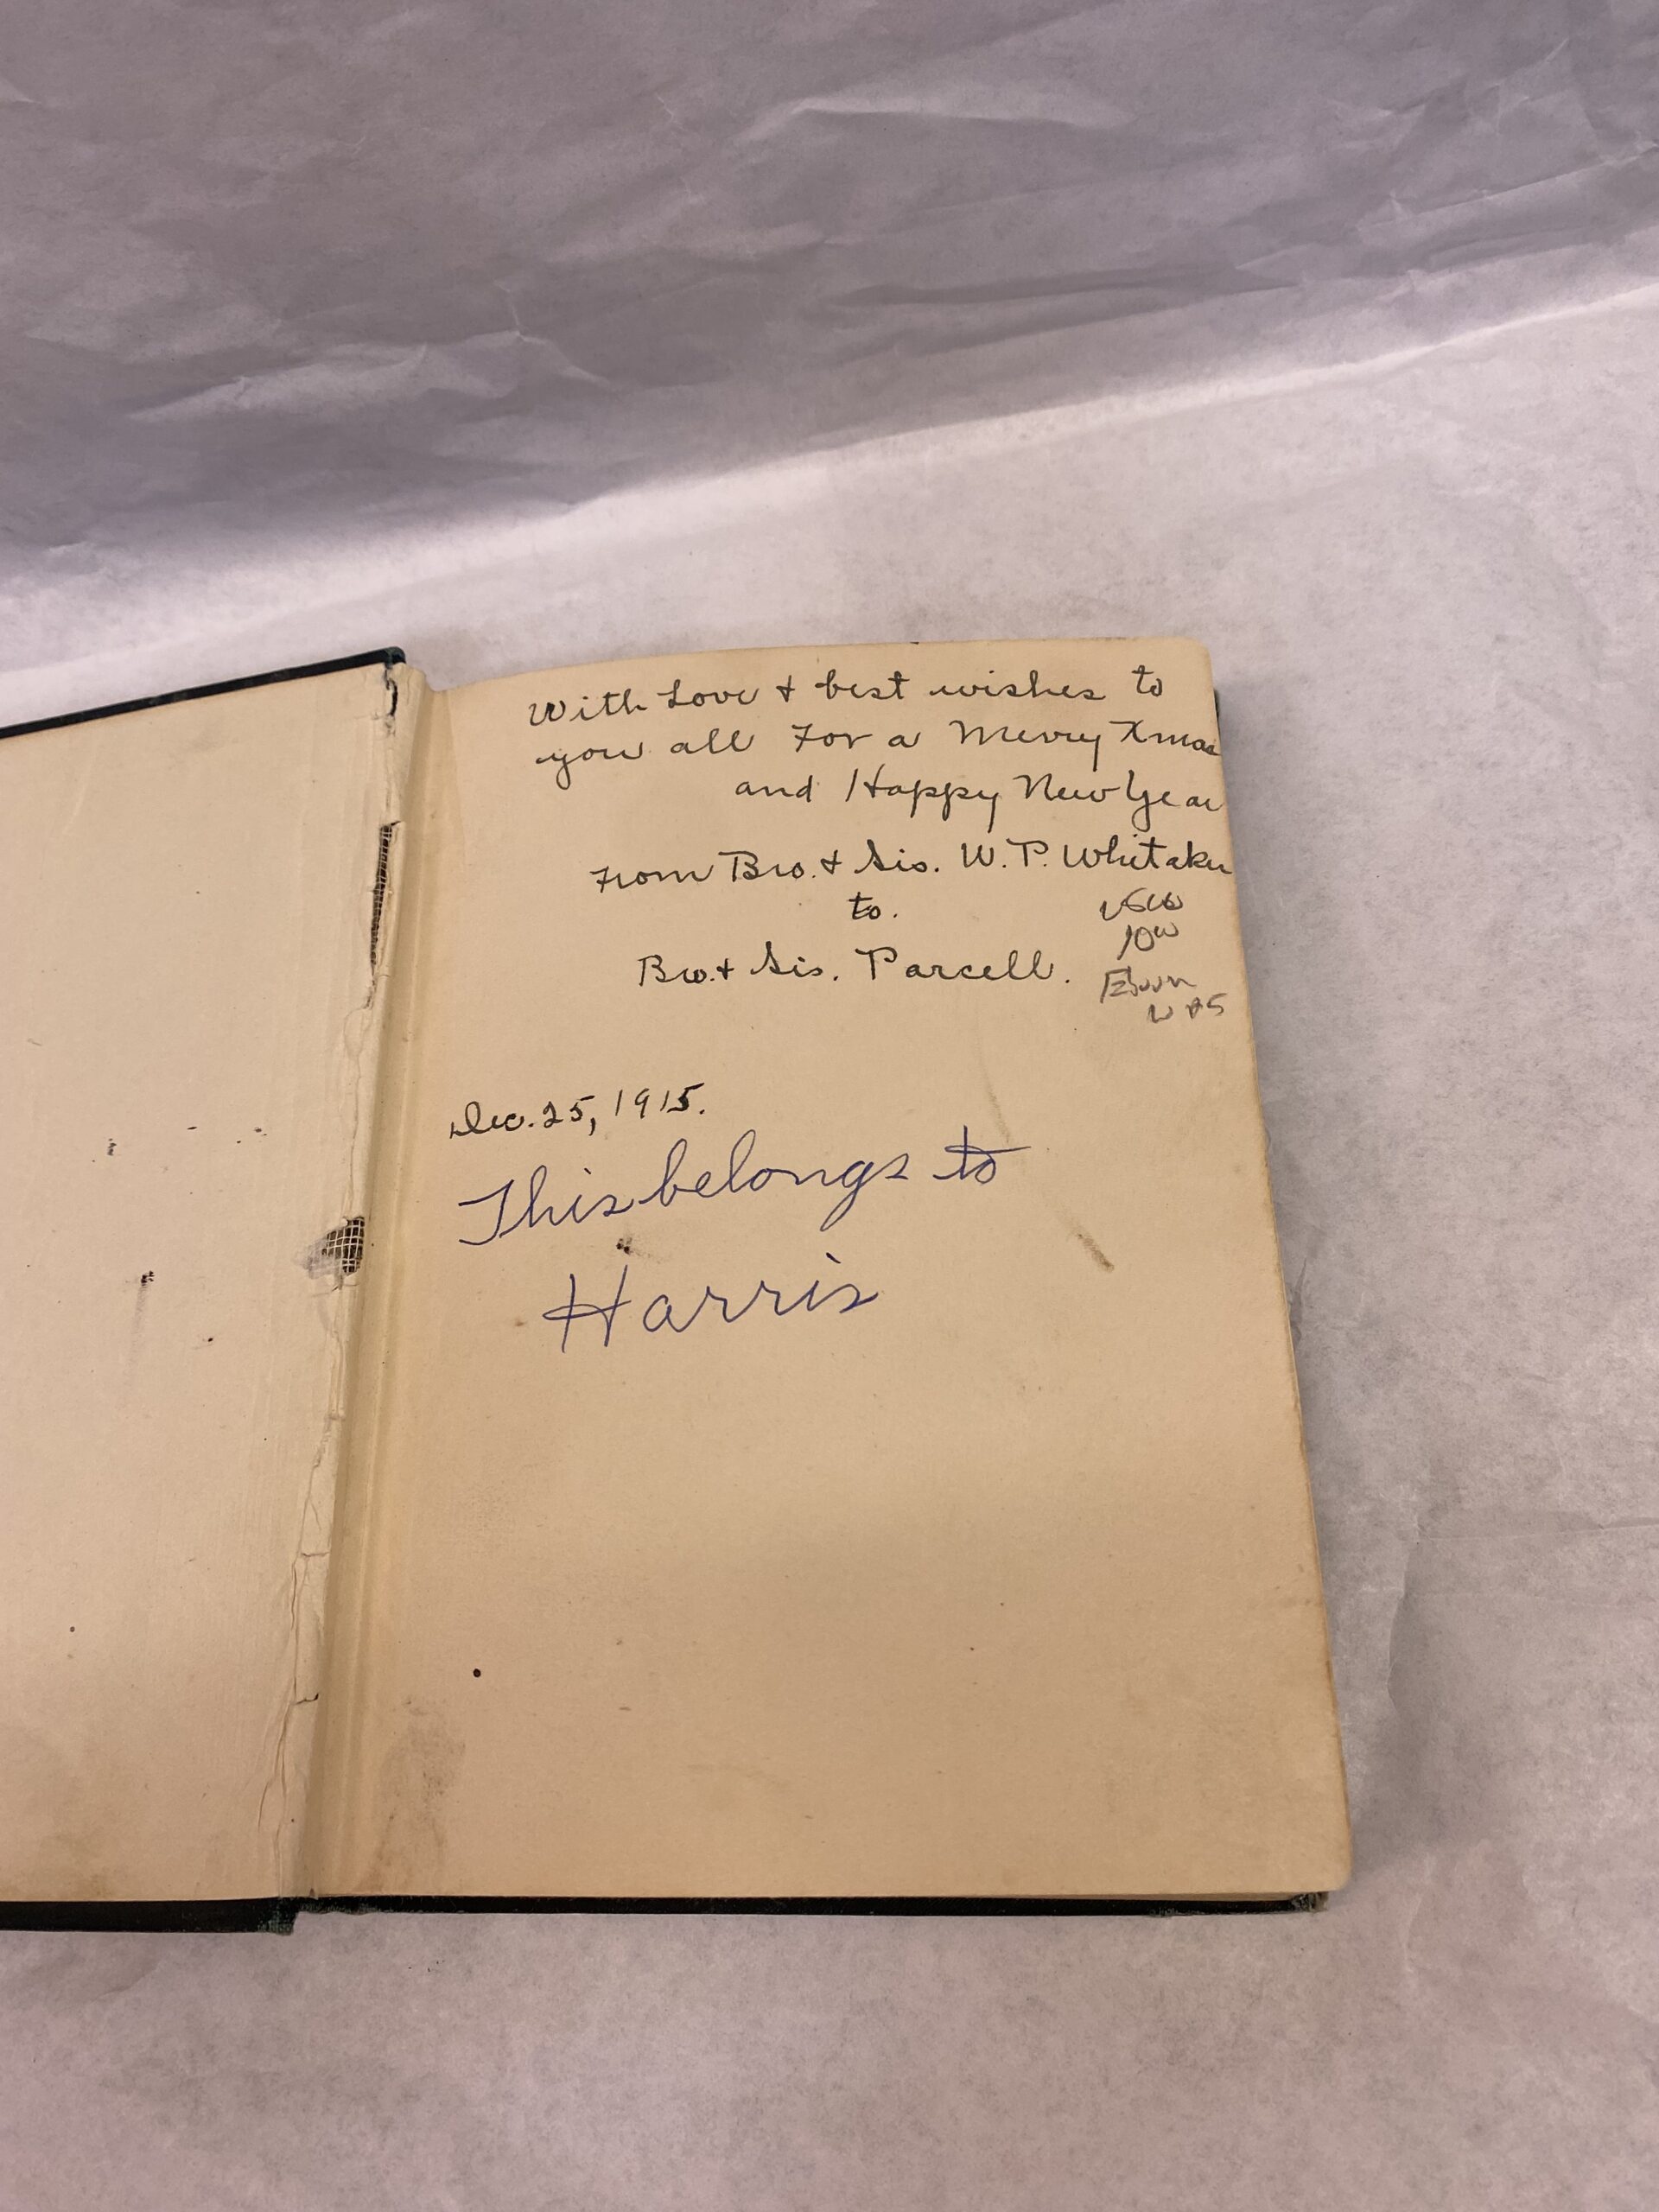 With Love & best wishes to
you all For a Merry Xmas
and Happy New Year
From Bro. & Sis. W. P. Whitaker
to.
Bro. & Sis. Parcell.
Dec. 25, 1915.
This belongs to
Harris